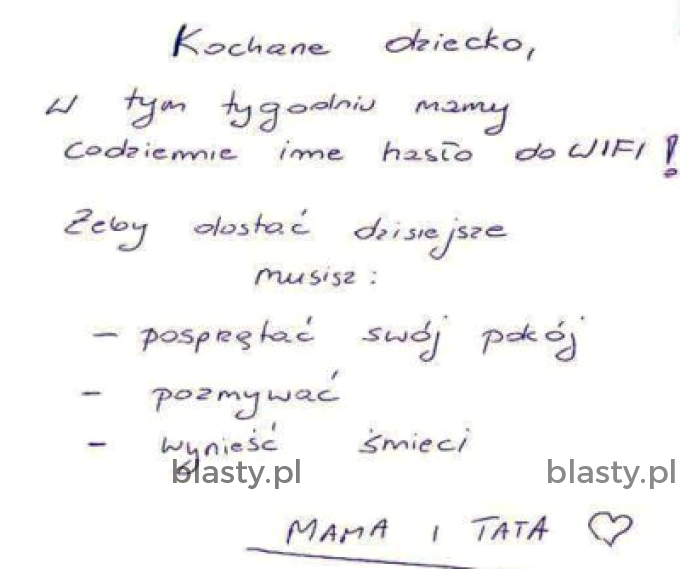 Kochane dziecko,
W tym tygodniu mamy
codziennie inne hasło do WIFI!
Żeby dostać dzisiejsze
musisz:
- posprzątać swój pokój
- pozmywać
- wynieść śmieci
blasty.pl blasty.pl
MAMA i TATA ♡